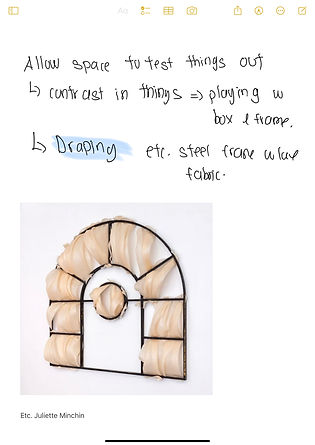 Allow space to test things out
↳ contrast in things ⇒ playing w
box & frame.
↳ Draping etc. steel frame w lave
fabric.
Etc. Juliette Minchin